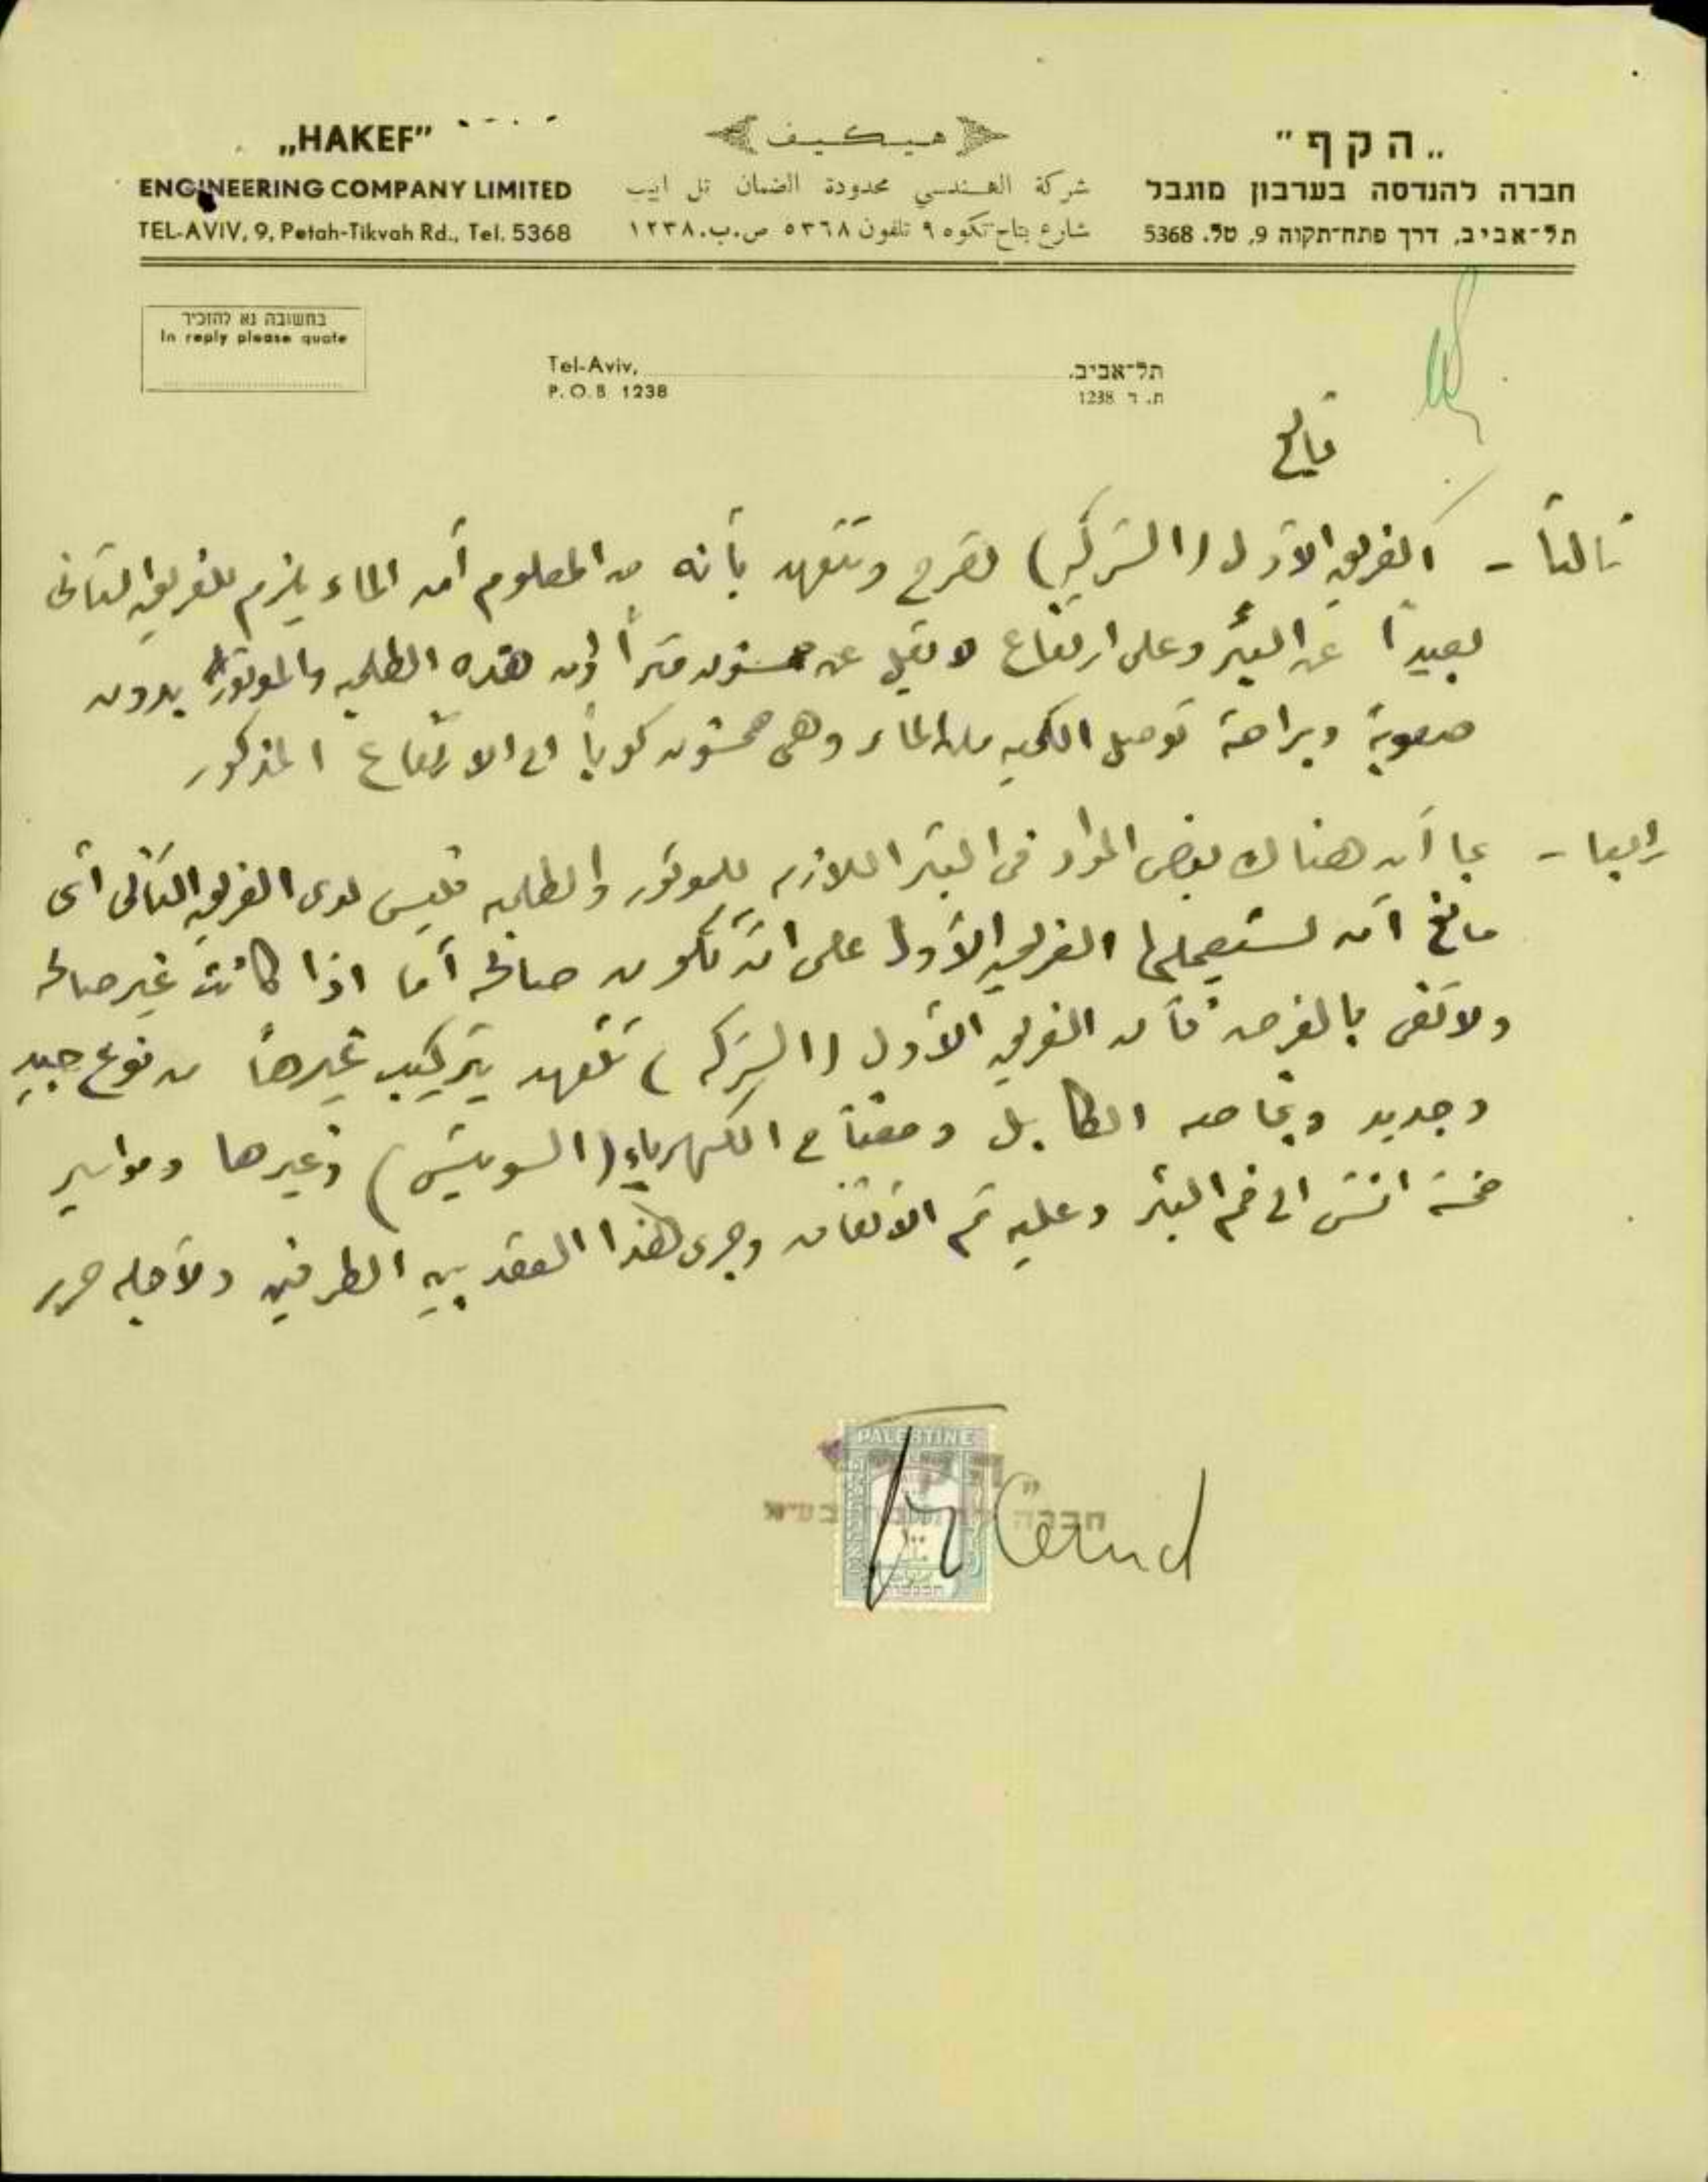 „HAKEF”
ENGINEERING COMPANY LIMITED
TEL-AVIV, 9, Petah-Tikvah Rd., Tel. 5368
هيكيف
شركة الهندسي محدودة الضمان تل ابيب
شارع بتاح-تكوه ٩ تلفون ٥٣٦٨ ص.ب. ١٢٣٨
„הקף”
חברה להנדסה בערבון מוגבל
תל־אביב, דרך פתח־תקוה 9, טל. 5368
בתשובה נא להזכיר
In reply please quote
Tel-Aviv, תל־אביב.
P.O.B 1238 ת. ד 1238
ثالثاً - الفريق الأول (الشركة) تصرح وتتعهد بأنه من المعلوم أن الماء يلزم للفريق الثاني
بعيداً عن البئر وعلى ارتفاع لا يقل عن متراً وان هذه الطلمبه والموتور بدون
صعوبة وبراحة توصل الكميه من الماء وهي كوباً الى الارتفاع المذكور
رابعا - بما أن هناك بعض المواد في البئر اللازمه للموتور والطلمبه فليس لدى الفريق الثاني أي
مانع أن يستعملها الفريق الأول على ان تكون صالحه أما اذا كانت غير صالحه
ولا تفى بالغرض فأن الفريق الأول (الشركه) تتعهد بتركيب غيرها من نوع جيد
وجديد وبخاصه الكابل ومفتاح الكهرباء (السويتش) وغيرها ومواسير
خمسة انش الى فم البئر وعليه تم الاتفاق وجرى هذا العقد بين الطرفين ولأجله حرر
PALESTINE
חברה בע״מ
١٠٠